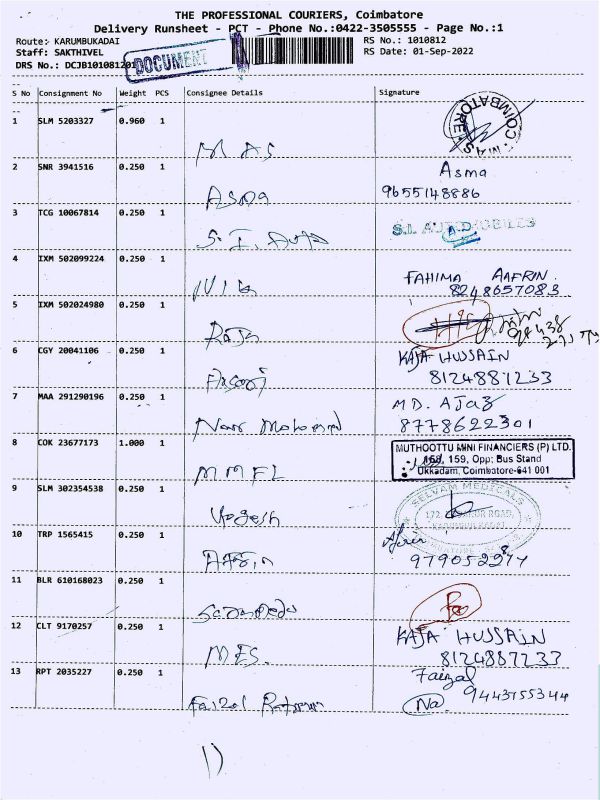 THE PROFESSIONAL COURIERS, Coimbatore
Delivery Runsheet - PCT - Phone No.:0422-3505555 - Page No.:1
Route: KARUMBUKADAI RS No.: 1010812
Staff: SAKTHIVEL RS Date: 01-Sep-2022
DRS No.: DCJB1010812
DOCUMENT
S No Consignment No Weight PCS Consignee Details Signature
1 SLM 5203327 0.960 1 MAS
COIMBATORE MAS
2 SNR 3941516 0.250 1 Asma Asma
9655148886
3 TCG 10067814 0.250 1 S.I. Auto S.I. AUTOMOBILES
4 IXM 502099224 0.250 1 FAHIMA AAFRIN.
8248657083
5 IXM 502024980 0.250 1 Raja
6 CGY 20041106 0.250 1 KAJA HUSSAIN
8124887233
7 MAA 291290196 0.250 1 Noor Mohamed MD. AJAZ
8778622301
8 COK 23677173 1.000 1 MMFL
MUTHOOTTU MINI FINANCIERS (P) LTD.
158, 159, Opp; Bus Stand
Ukkadam, Coimbatore-641 001
9 SLM 302354538 0.250 1 Yogesh
SELVAM MEDICALS
10 TRP 1565415 0.250 1 Aafrin Afrin
11 BLR 610168023 0.250 1
12 CLT 9170257 0.250 1 MES. KAJA HUSSAIN
8124887233
13 RPT 2035227 0.250 1 Faizal Rahman Faizal
9443155344